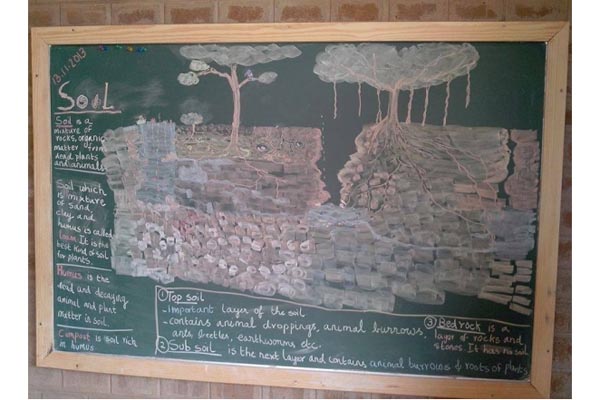 13.11.2013
SOIL
Soil is a
mixture of
rocks, organic
matter from
dead plants
and animals
Soil which
is mixture
of sand,
clay and
humus is called
loam. It is the
best kind of soil
for plants.
Humus is the
dead and decaying
animal and plant
matter in soil.
Compost is soil rich
in humus.
① Top soil
- Important layer of the soil
- contains animal droppings, animal burrows,
ants, beetles, earthworms etc.
② Sub soil is the next layer and contains animal burrows & roots of plants
③ Bedrock is a
layer of rocks and
stones. It has no soil